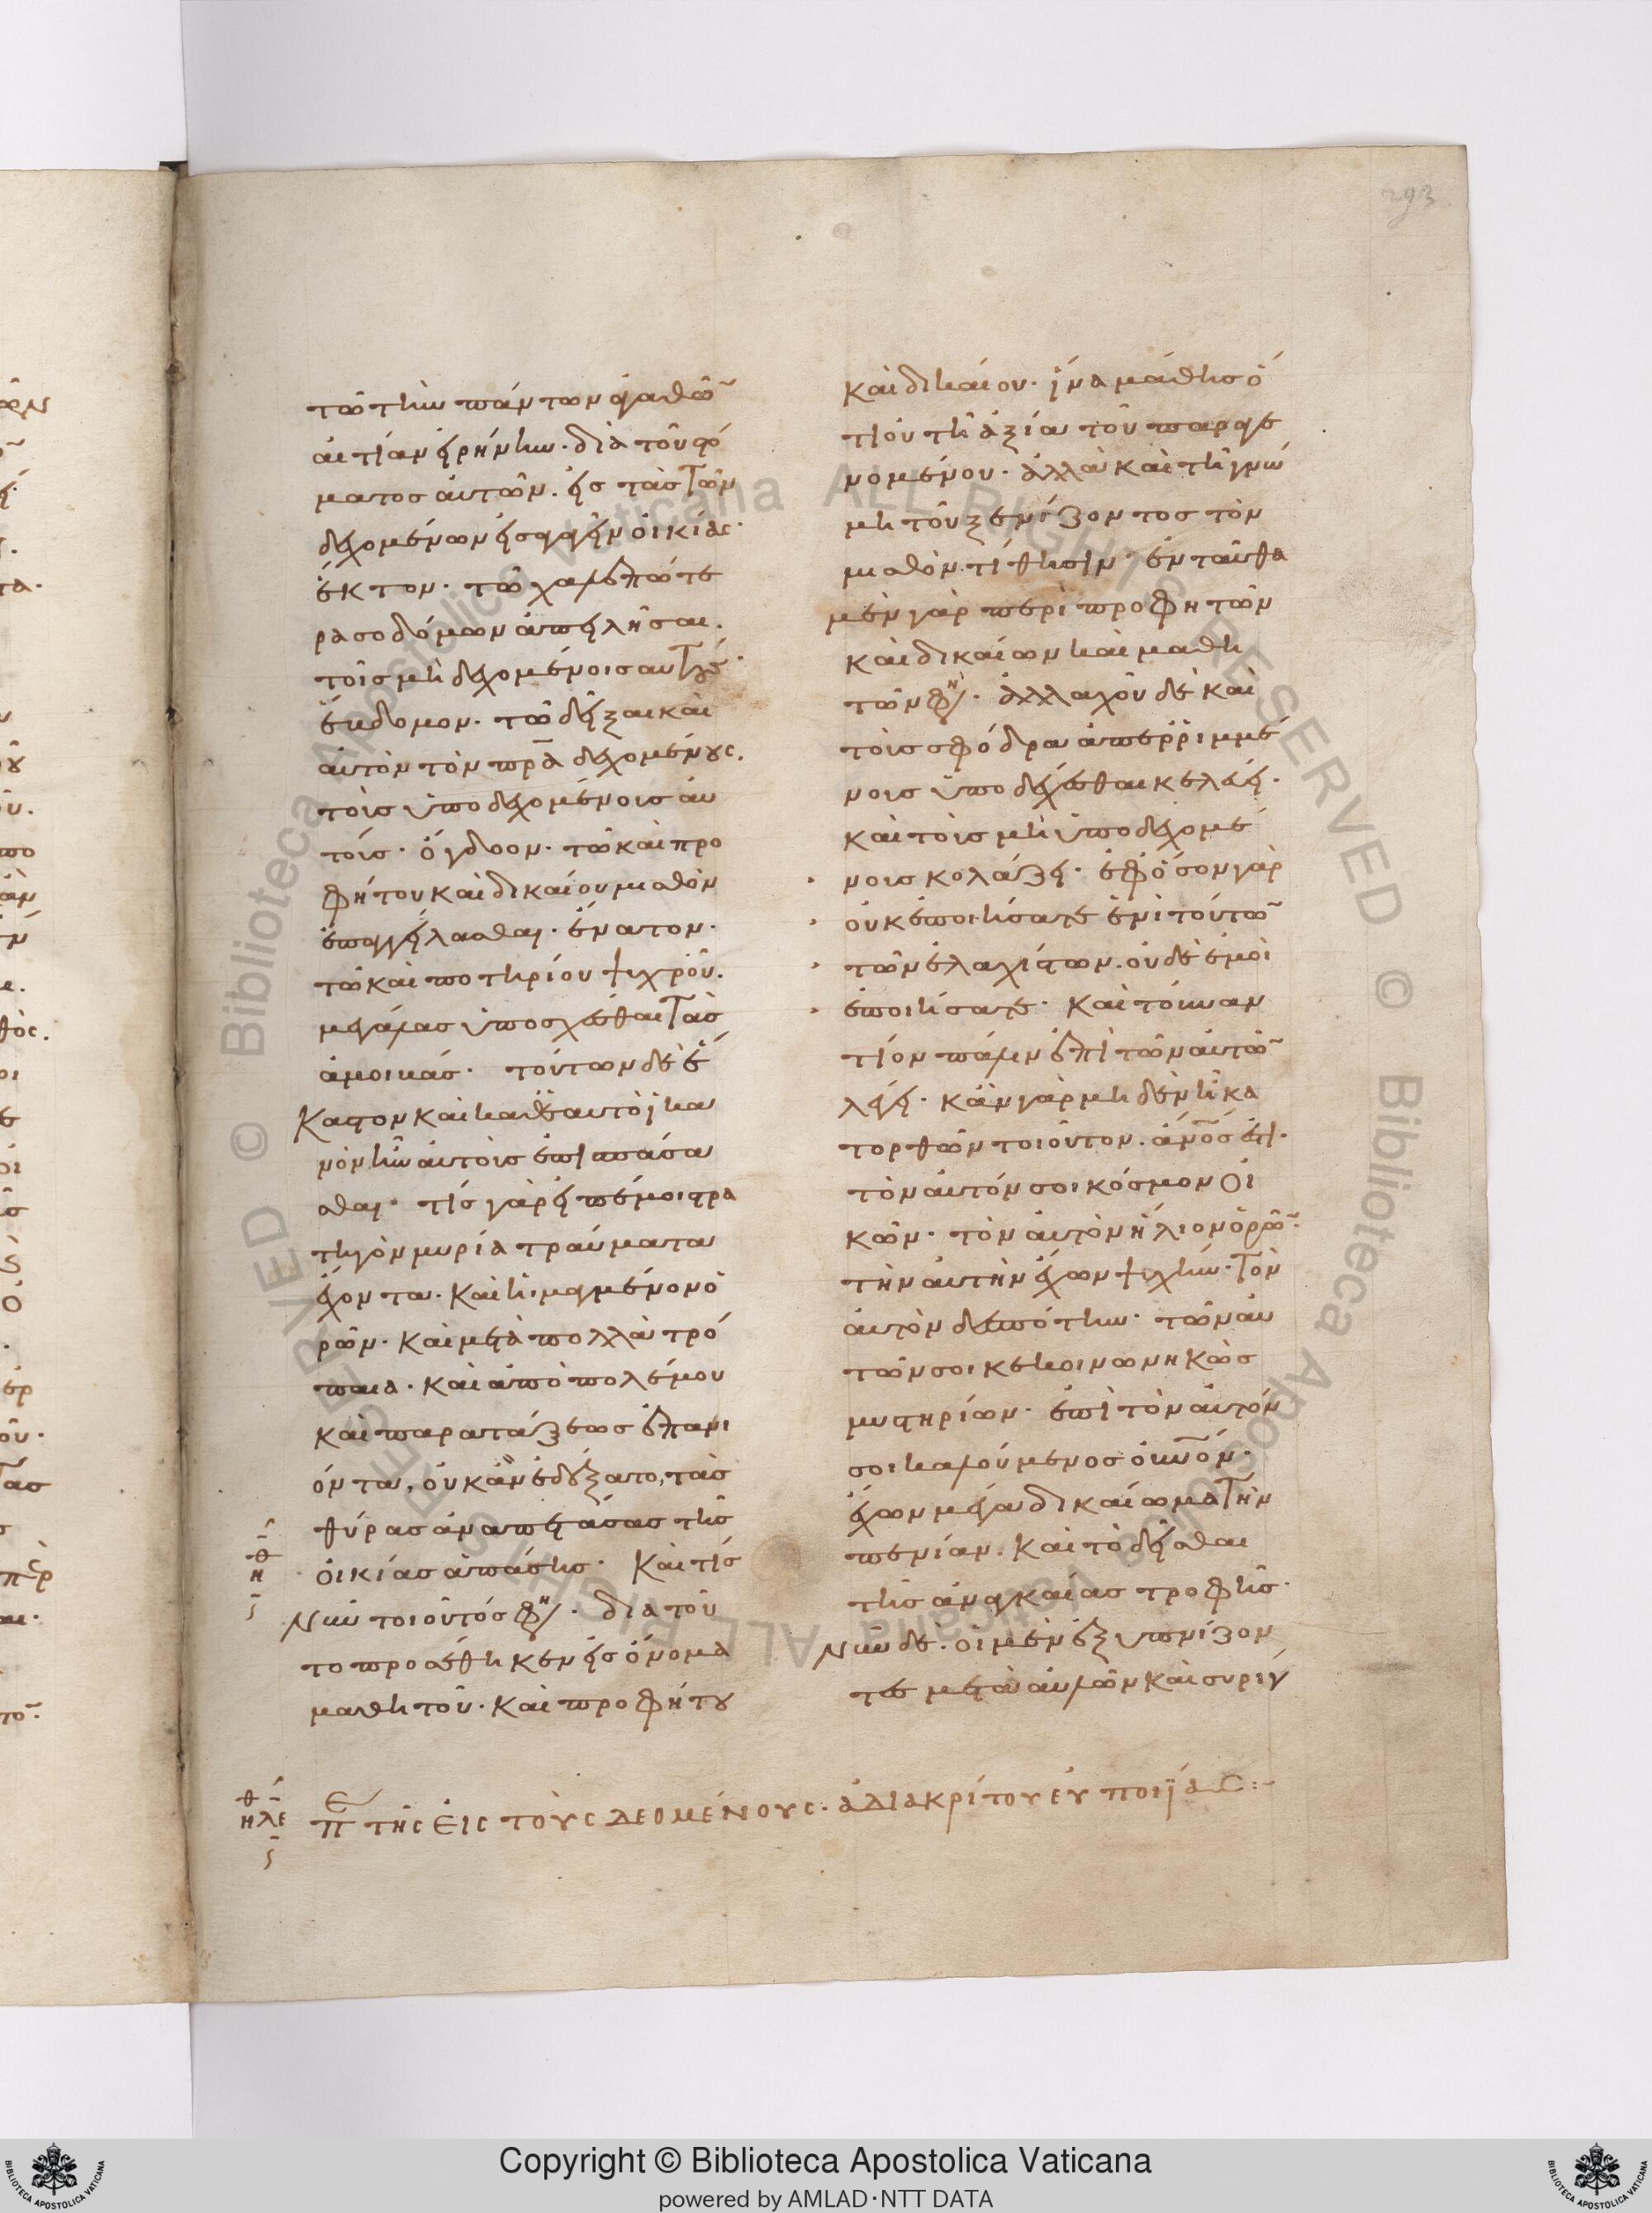 293
τῶ τὴν πάντων ἀγαθῶ͂
αἰτίαν εἰρήνην· διὰ τοῦ στό
ματος αὐτῶν· εἰς τὰς τῶν
δεχομένων εἰσαγαγεῖν οἰκίας·
ἕκτον· τῶ χαλεπώτε
ρα σοδόμων ἀπειλῆσαι·
τοῖς μὴ δεχομένοις αὐτούς·
ἕβδομον· τῶ δεῖξαι καὶ
αὐτὸν τὸν πρ̅α δεχομένους·
τοῖς ὑποδεχομένοις αὐ
τούς· ὄγδοον· τῶ καὶ προ
φήτου καὶ δικαίου μισθὸν
ἐπαγγείλασθαι· ἔνατον·
τῶ καὶ ποτηρίου ψυχροῦ·
μεγάλας ὑποσχέσθαι τὰς
ἀμοιβάς· τούτων δὲ ἕ
καστον καὶ καθεαυτὸ ἱκα
νὸν ἦν αὐτοὺς ἐπισπάσα
σθαι· τίς γὰρ εἰπέ μοι στρα
τηγὸν μυρία τραύματα
ἔχοντα· καὶ ἡμαγμένον ὁ
ρῶν· καὶ μετὰ πολλὰ τρό
παια· καὶ ἀπὸ πολέμου
καὶ παρατάξεως ἐπανι
όντα, οὐκ ἂν ἐδέξατο, τὰς
θύρας ἀναπετάσας τῆς
οἰκίας ἁπάσης· Καὶ τίς
Νῦν τοιοῦτός φη· διατοῦ
το προσέθηκεν εἰς ὄνομα
μαθητοῦ· καὶ προφήτου
καὶ δικαίου· ἵνα μάθης ὅ
τι οὐ τῆ ἀξία τοῦ παραγε
νομένου· ἀλλὰ καὶ τῆ γνώ
μη τοῦ ξενίζοντος τὸν
μισθὸν τίθησιν· ἐνταῦθα
μὲν γὰρ περὶ προφητῶν
καὶ δικαίων καὶ μαθη
τῶν φη· ἀλλαχοῦ δὲ καὶ
τοὺς σφόδρα ἀπερριμμέ
νους ὑποδέχεσθαι κελεύει·
καὶ τοὺς μὴ ὑποδεχομέ
νους κολάζει· ἐφ' ὅσον γὰρ
οὐκ ἐποιήσατε ἑνὶ τούτῶ
τῶν ἐλαχίστων· οὐδὲ ἐμοὶ
ἐποιήσατε· Καὶ τοὐναν
τίον πάλιν ἐπὶ τῶν αὐτῶ͂
λέγει· κἂν γὰρ μηδὲν ἦ κα
τορθῶν τοιοῦτον· ἄν̅ος ἐστι·
τὸν αὐτόν σοι κόσμον οἰ
κῶν· τὸν αὐτὸν ἥλιον ὁρῶ͂·
τὴν αὐτὴν ἔχων ψυχήν· τὸν
αὐτὸν δεσπότην· τῶν αὐ
τῶν σοι κεκοινωνηκὼς
μυστηρίων· ἐπὶ τὸν αὐτόν
σοι καλούμενος οὐ̅νόν·
ἔχων μέγα δικαίωμα τὴν
πενίαν· καὶ τὸ δεῖσθαι
τῆς ἀναγκαίας τροφῆς·
Νῦν δὲ· οἱ μὲν ἐξυπνίζον
τές μετὰ αὐλῶν καὶ συρίγ
ΠΕ ΤΗΣ ΕΙΣ ΤΟΥΣ ΔΕΟΜΕΝΟΥΣ· ΑΔΙΑΚΡΙΤΟΥ ΕΥΠΟΙΪΑΣ:~
Copyright © Biblioteca Apostolica Vaticana
powered by AMLAD·NTT DATA